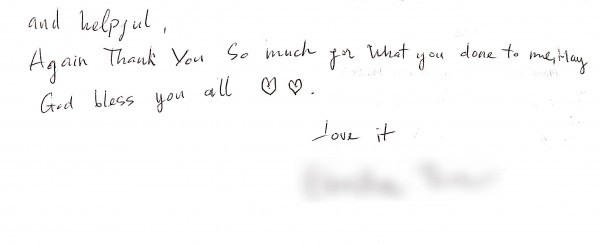 and helpful,
Again Thank You So much for what you done to me, May
God bless you all ♡♡.
Love it